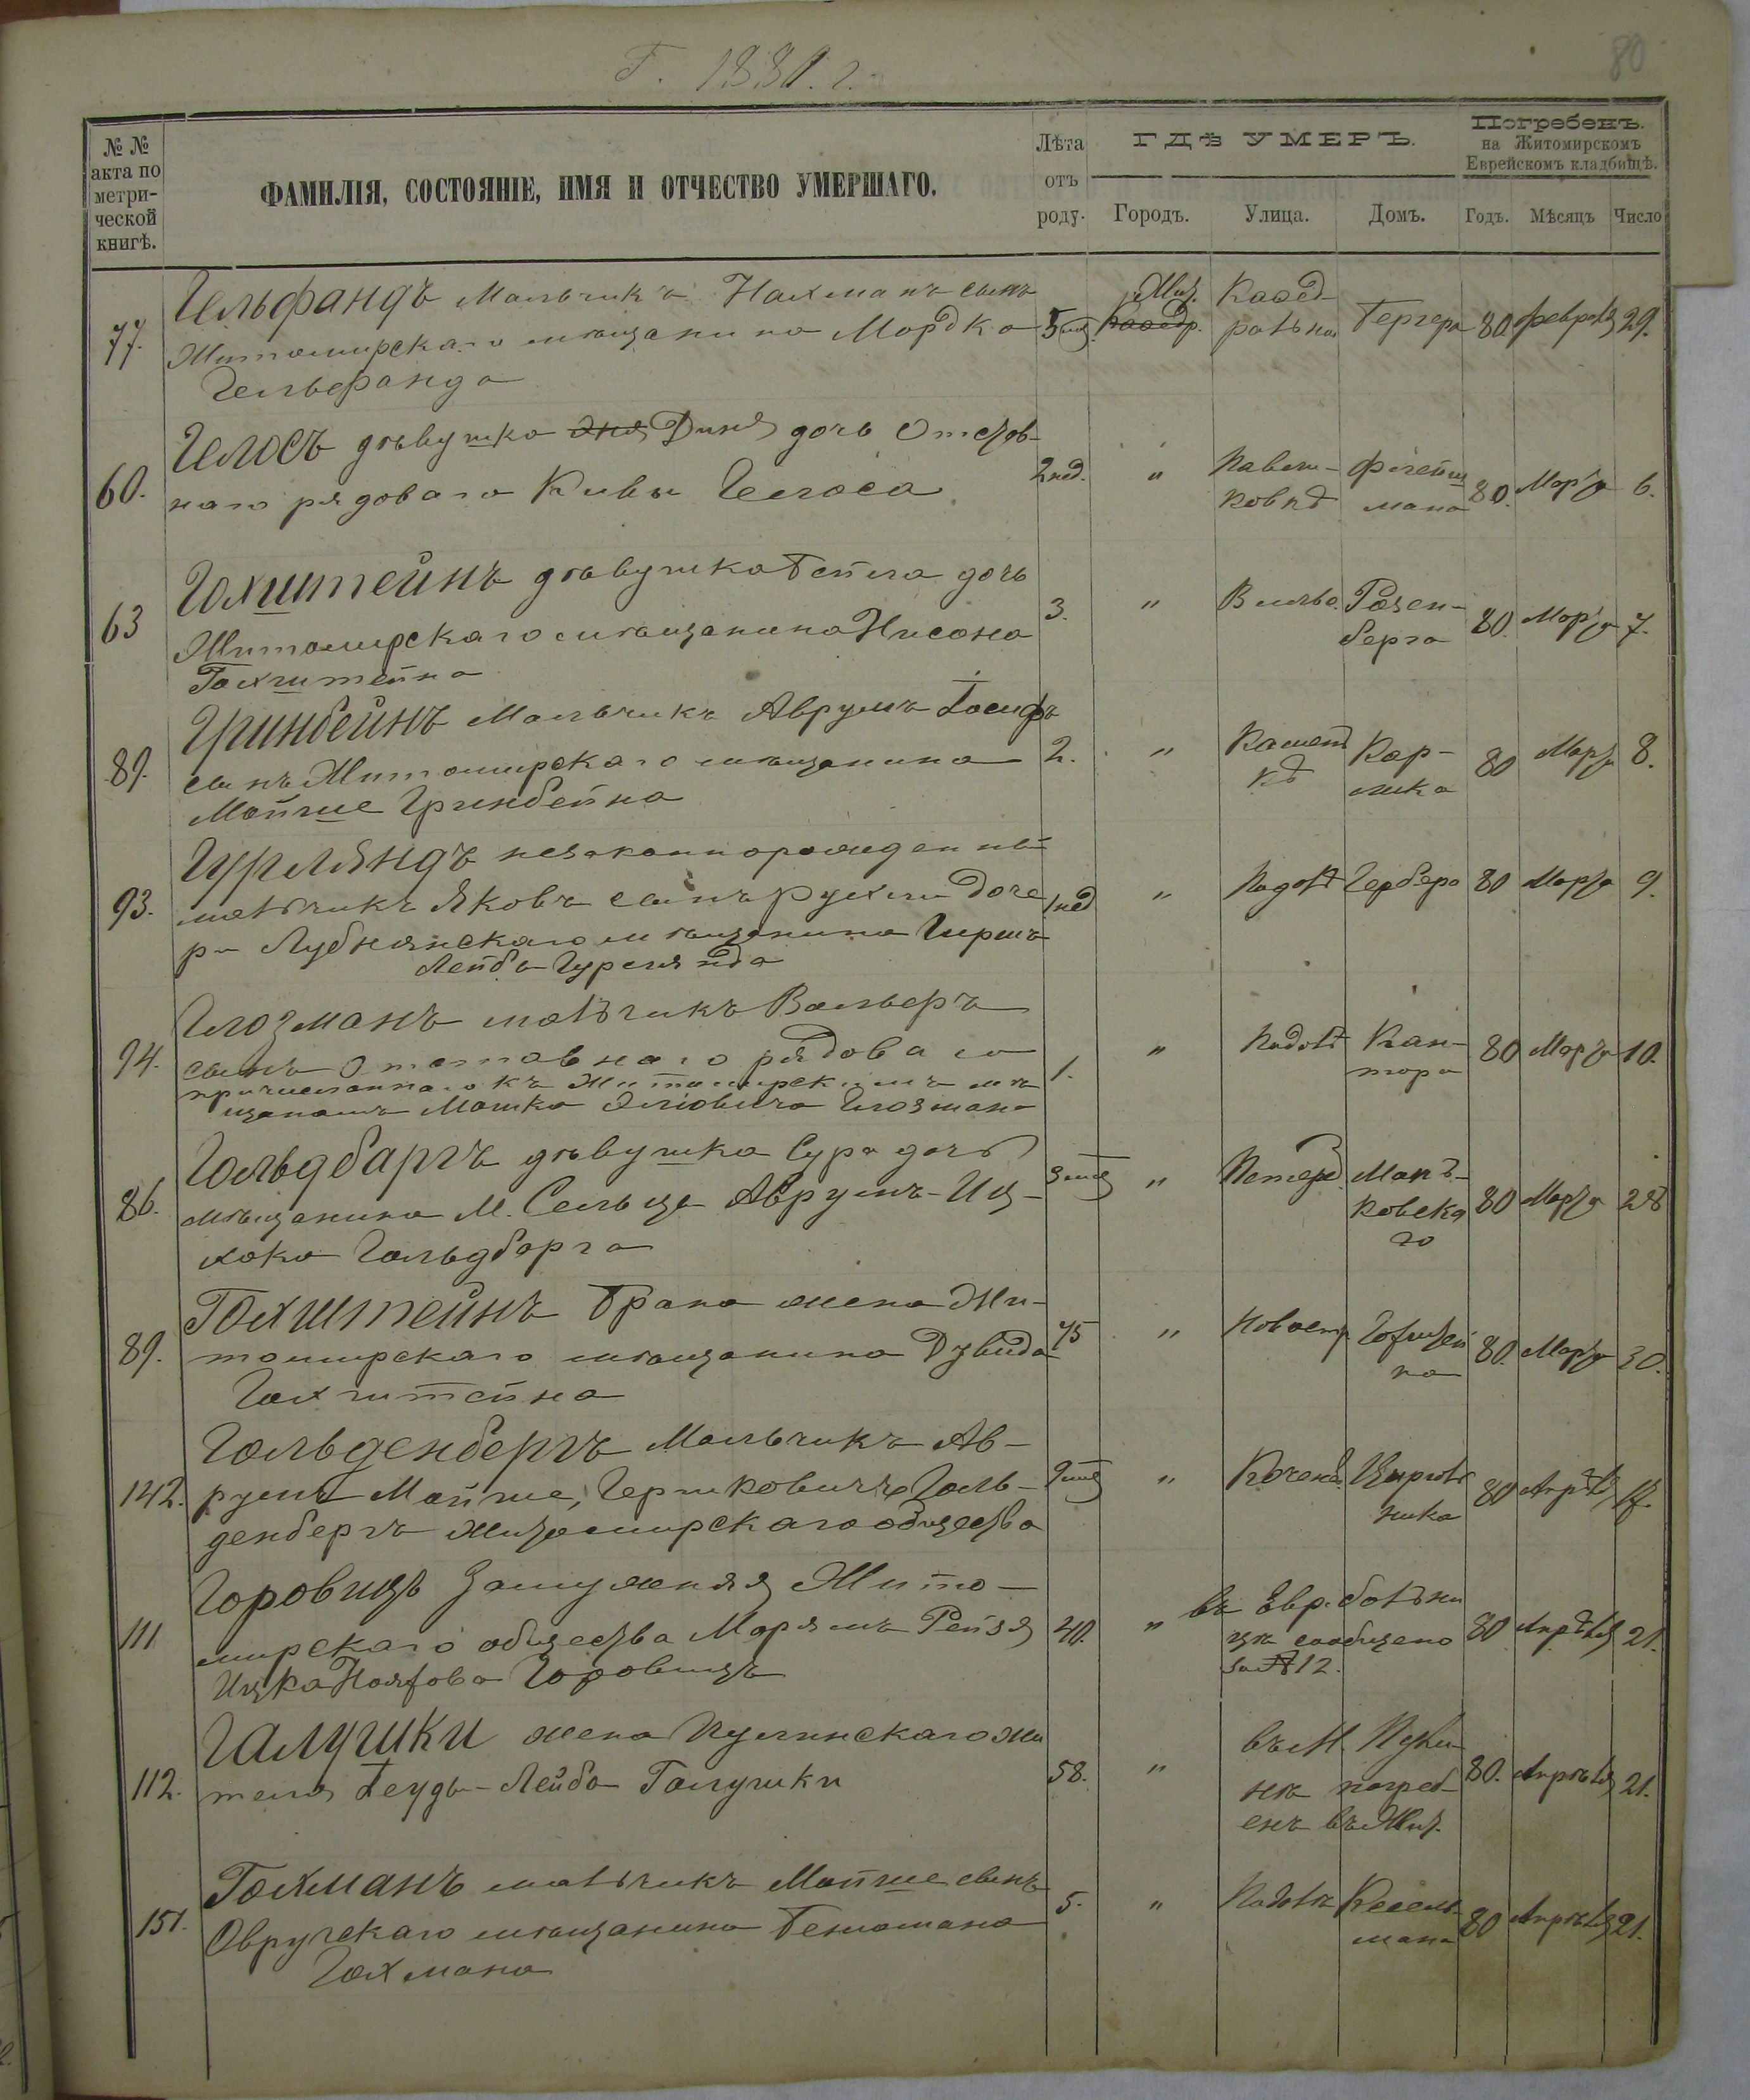 Г. 1880 г.
80
№ №
акта по
метри-
ческой
книгѣ.
ФАМИЛІЯ, СОСТОЯНІЕ, ИМЯ И ОТЧЕСТВО УМЕРШАГО.
Лѣта
отъ
роду.
ГДѢ УМЕРЪ.
Городъ.
Улица.
Домъ.
Погребенъ.
на Житомирскомъ
Еврейскомъ кладбищѣ.
Годъ.
Мѣсяцъ
Число
77.
Гельфандъ Мальчикъ Нахманъ сынъ
Житомирскаго мѣщанина Мордка
Гельфанда
5 мѣ.
Жит.
Каѳед-
ральная
Гергера
80.
февраля
29.
60.
Гелосъ дѣвушка Диня дочь Отстав-
наго рядоваго Кивы Гелоса
2 нед.
"
Павли-
ковкѣ
Флейш
мана
80.
Марта
6.
63
Гохштейнъ дѣвушка Бейла дочь
Житомирскаго мѣщанина Нисона
Гохштейна
3.
"
Вильс.
Розен-
берга
80.
Марта
7.
89.
Гринбейнъ Мальчикъ Аврумъ Іосифъ
сынъ Житомирскаго мѣщанина
Мойше Гринбейна
2.
"
Кашен
кѣ
Кар-
лика
80
Марта
8.
93.
Гурляндъ незаконнорожденный
мальчикъ Яковъ сынъ Рухли доче
ри Лубнянскаго мѣщанина Гершъ
Лейбы Гурлянда
1 нед
"
Подолѣ
Гербера
80
Марта
9.
94.
Глозманъ мальчикъ Вольфъ
сынъ Отставнаго рядоваго
причисленнаго къ Житомирскимъ мѣ
щанамъ Мошка Эліовича Глозмана
1.
"
Подолѣ
Кан-
тора
80
Марта
10.
86.
Гольдбаргъ дѣвушка Сура дочь
мѣщанина М. Сельца Аврумъ-Иц-
хока Гольдбарга
3 мѣ
"
Петерб.
Мань-
ковска
го
80
Марта
28
89.
Гохштейнъ Брана жена Жи-
томирскаго мѣщанина Дувида
Гохштейна
75
"
Новостр.
Гохштей
на
80.
Марта
30.
142.
Гольденбергъ Мальчикъ Ав-
румъ Мойше, Гершковичъ Голь-
денбергъ Житомирскаго общества
9 мѣ
"
Цируль
ника
80
Апрѣля
17.
111
Горовицъ Замужняя Жито-
мирскаго общества Марьямъ Рейзя
Ицка Горовицъ
40.
"
въ Евр. больни
цѣ сообщено
за № 12.
80
Апрѣля
21.
112.
Галушки жена Пулинскаго жи
теля Іеуды-Лейба Галушки
58.
"
въ М. Пули-
нѣ погреб-
енъ въ Жит.
80.
Апрѣля
21.
151.
Гохманъ мальчикъ Мойше сынъ
Овручскаго мѣщанина Бенюмана
Гохмана
5.
"
Подолѣ
Кесель-
мана
80
Апрѣля
21.